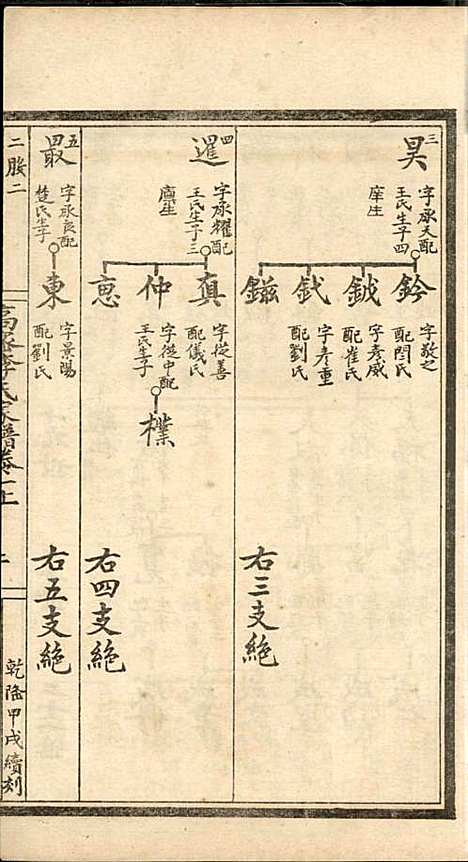 三
昊
字承天配
王氏生子四
庠生
鈐
字敬之
配閆氏
鉞
字彥威
配崔氏
鉽
字彥重
配劉氏
鎡
右三支絕
四
暹
字承耀配
王氏生子三
廪生
真
字從善
配儀氏
仲
字從中配
王氏生子
樸
悳
右四支絕
五
最
字承良配
楚氏生子
東
字景陽
配劉氏
右五支絕
二股二
高密李氏家譜卷一上
乾隆甲戌續刻